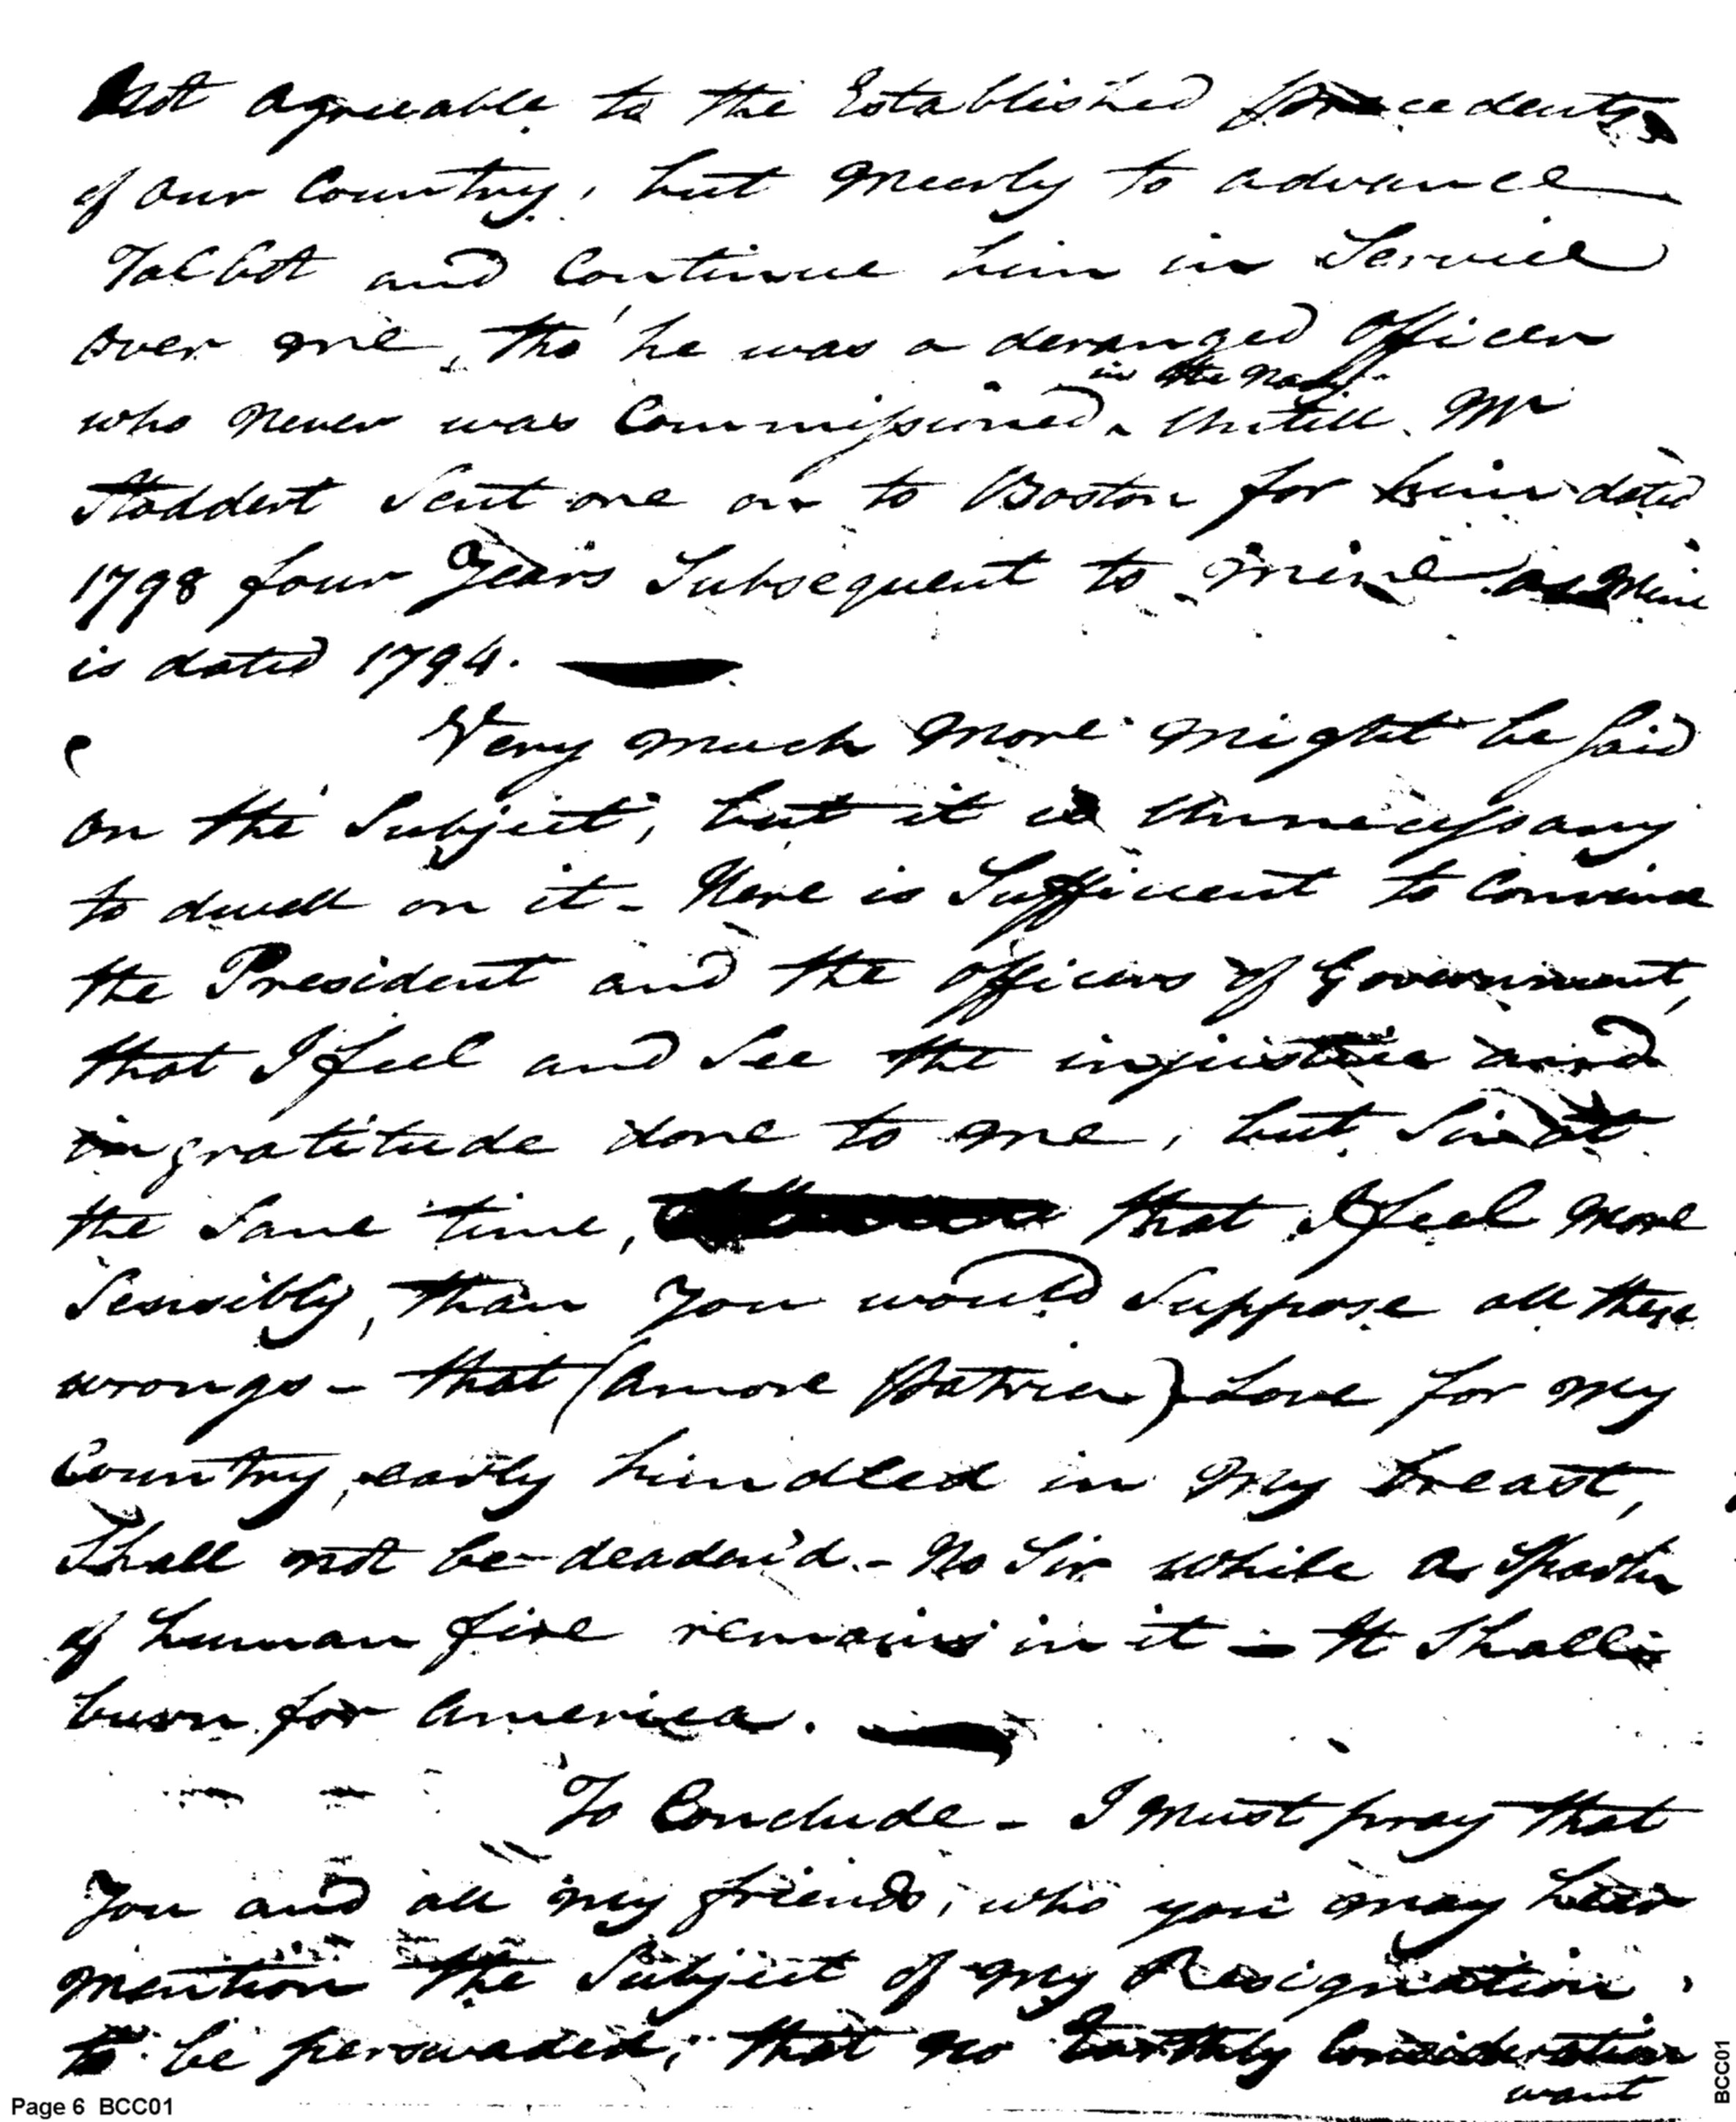 Not agreeable to the Established precedents
of our Country, but meerly to advance
Talbot and Continue him in Service
over me, tho' he was a deranged officer
in the Navy
who never was Commissioned ^ Untill Mr
Stoddert Sent one on to Boston for him dated
1798 four Years Subsequent to mine as Mine
is dated 1794.
Very much more might be Said
on the Subject, but it is Unnecessary
to dwell on it - Here is Sufficient to Convince
the President and the officers of Government,
that I feel and See the injustice and
ingratitude done to me, but Sir at
the Same time, that I feel more
Sensibly, than You would Suppose all these
wrongs - that (Amore Patriae) Love for my
Country, early kindled in my breast,
Shall not be deaden'd. - No Sir while a Spark
of human fire remains in it - It Shall
burn for America.
To Conclude - I must pray that
You and all my friends, who you may hear
mention the Subject of my Resignation,
to be perswaded; that no Earthly Consideration
want
Page 6 BCC01
BCC01